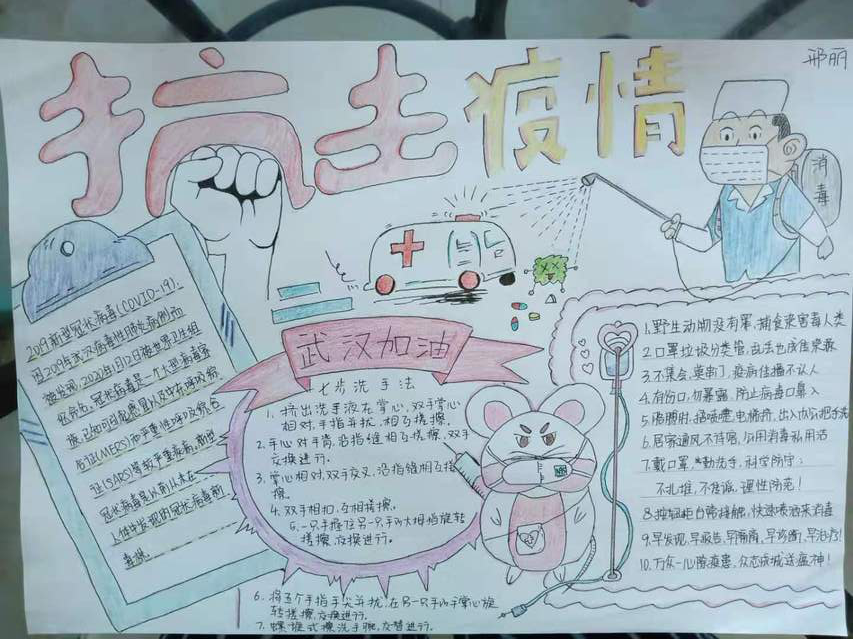 抗击疫情
邢丽
消毒
2019新型冠状病毒(COVID-19),
因2019年武汉病毒性肺炎病例而
被发现,2020年1月12日被世界卫生组
织命名。冠状病毒是一个大型病毒家
族,已知可引起感冒以及中东呼吸综
合征(MERS)和严重急性呼吸综合
征(SARS)等较严重疾病。新型
冠状病毒是以前从未在
人体中发现的冠状病毒新
毒株。
武汉加油
七步洗手法
1、挤出洗手液在掌心,双手掌心
相对,手指并拢,相互搓擦。
2、手心对手背,沿指缝相互搓擦,双手
交换进行。
3、掌心相对,双手交叉,沿指缝相互搓
擦。
4、双手相扣,互相搓擦。
5、一只手握住另一只手的大拇指旋转
搓擦,交换进行。
6、将五个手指手尖并拢,在另一只手的手掌心旋
转搓擦,交换进行。
7、螺旋式擦洗手腕,交替进行。
1、野生动物没有罪,捕食来害毒人类
2、口罩垃圾分类管,
3、不集会,莫串门,疫病传播不认人
4、有伤口,勿暴露,防止病毒口鼻入
5、
6、居家通风不待客,公用消毒私用活
7、戴口罩,勤洗手,科学防守;
不扎堆,不传谣,理性防范!
8、按钮柜台常接触,快速喷洒来消毒
9、早发现,早报告,早隔离,早诊断,早治疗!
10、万众一心
众志成城送瘟神!